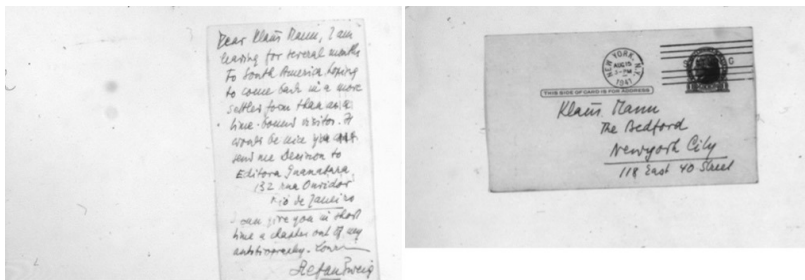 Dear Klaus Mann, I am
leaving for several months
to South America hoping
to come back in a more
settled form than as a
time-bound visitor. It
would be nice you
send me Decision to
Editora Guanabara,
132 rua Ouvidor
Rio de Janeiro
I can give you in short
time a chapter out of my
autobiography. Yours
Stefan Zweig
NEW YORK, N.Y.
AUG 15
PM
1941
THIS SIDE OF CARD IS FOR ADDRESS
Klaus Mann
The Bedford
Newyork City
118 East 40 Street